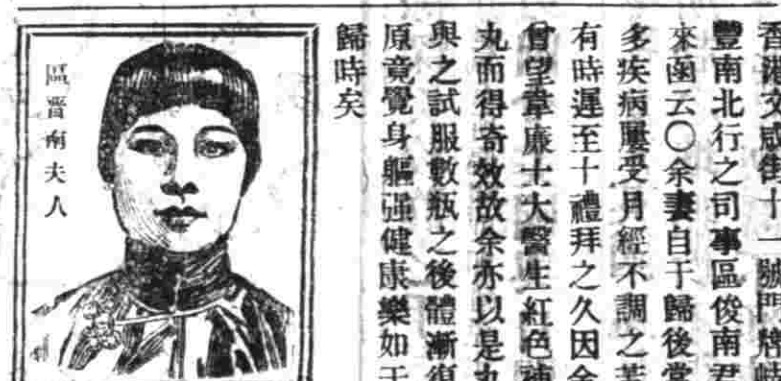 香港文咸街十一號門牌
豐南北行之司事區俊南君
來函云〇余妻自于歸後常
多疾病屢受月經不調之苦
有時遲至十禮拜之久因余
曾望韋廉士大醫生紅色補
丸而得奇效故余亦以是丸
與之試服數瓶之後體漸復
原竟覺身軀强健康樂如于
歸時矣
區晋南夫人